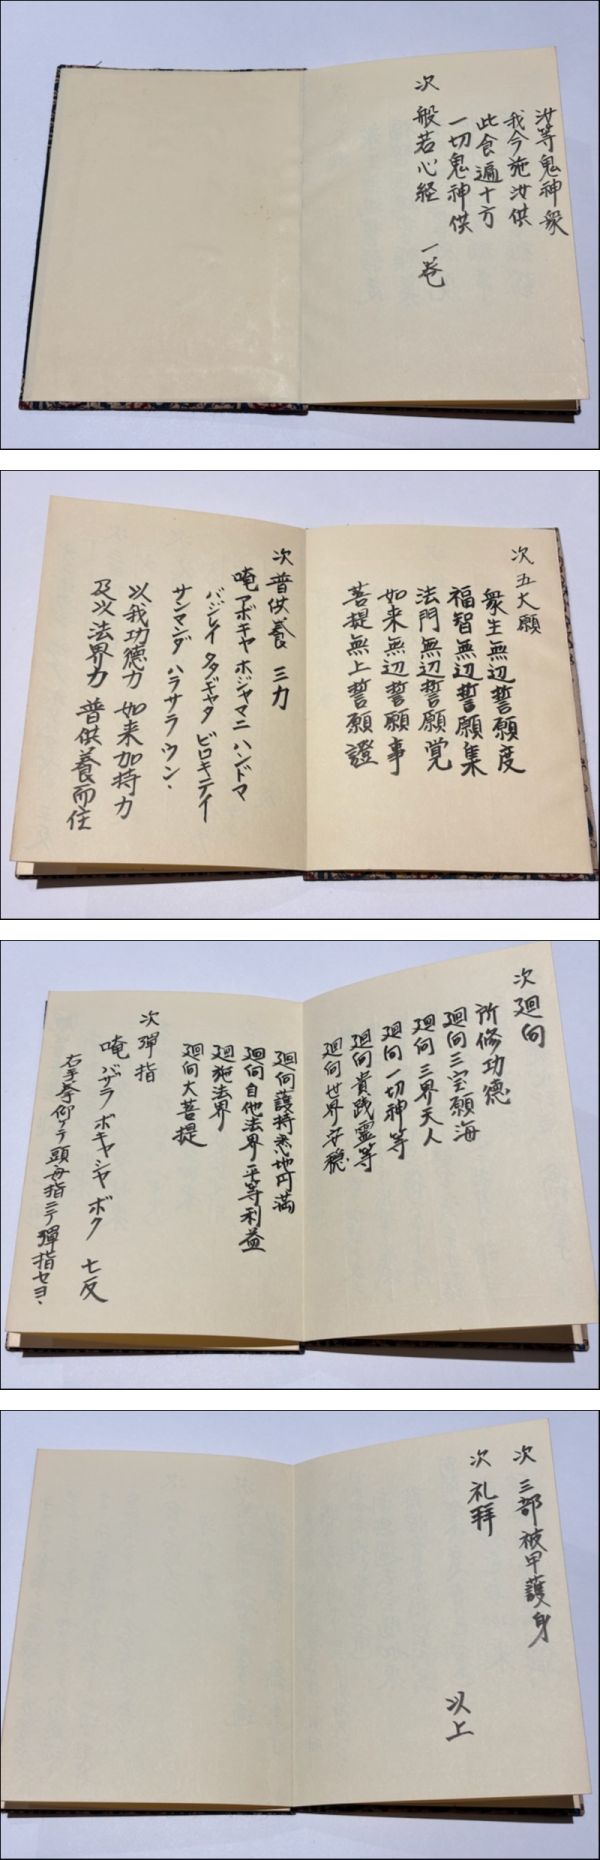 汝等鬼神衆
我今施汝供
此食遍十方
一切鬼神供
次 般若心経 一巻
次 五大願
衆生無辺誓願度
福智無辺誓願集
法門無辺誓願覚
如来無辺誓願事
菩提無上誓願證
次 普供養 三力
唵 アボキャ ホジャマニ ハンドマ
バジレイ タタギャタ ビロキテイ
サンマンダ ハラサラ ウン.
以我功徳力 如来加持力
及以法界力 普供養而住
次 廻向
所修功徳
廻向三宝願海
廻向三界天人
廻向一切神等
廻向貴賎霊等
廻向世界安穏
廻向護持悉地円満
廻向自他法界平等利益
廻施法界
廻向大菩提
次 弾指
唵 バザラ ボキャシャ ボク 七反
右手拳仰ケテ 頭母指ニテ 弾指セヨ.
次 三部被甲護身
次 礼拝
以上